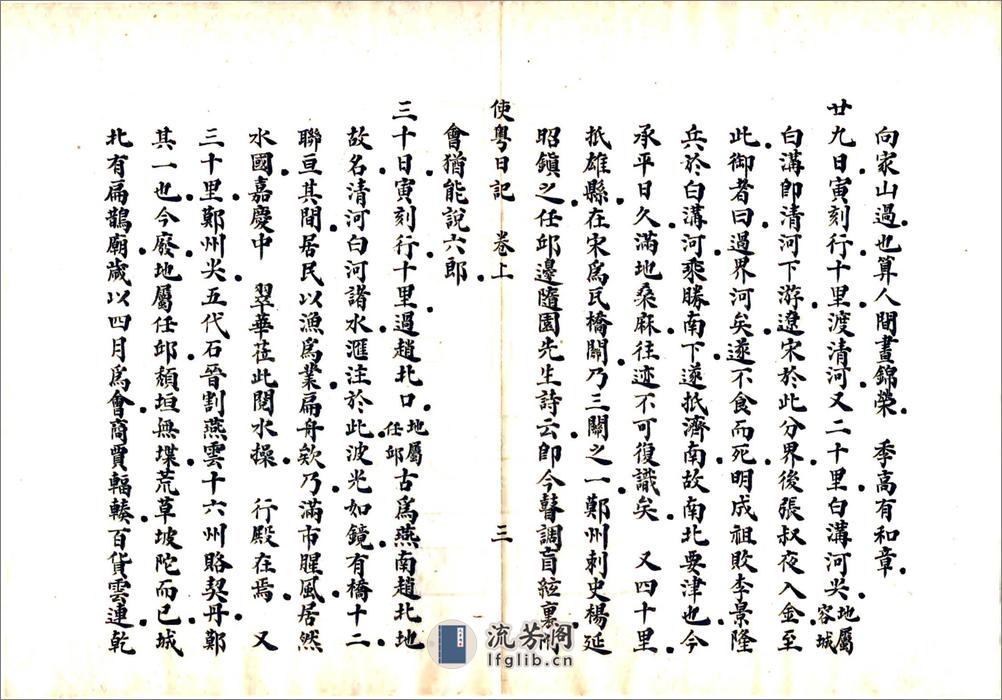 向家山過也算人間晝錦榮　季高有和章
廿九日寅刻行十里渡清河又二十里白溝河尖地屬容城
白溝即清河下游遼宋於此分界後張叔夜入金至
此御者曰過界河矣遂不食而死明成祖敗李景隆
兵於白溝河乘勝南下遂抵濟南故南北要津也今
承平日久滿地桑麻往迹不可復識矣　又四十里
抵雄縣在宋爲瓦橋關乃三關之一鄭州刺史楊延
昭鎮之任邱邊隨園先生詩云即今瞽調盲絃裏
會猶能說六郎
使粵日記　卷上　三
三十日寅刻行十里過趙北口地屬任邱古爲燕南趙北地
故名清河白河諸水滙注於此波光如鏡有橋十二
聯亘其間居民以漁爲業扁舟欸乃滿市腥風居然
水國嘉慶中　翠華莅此閱水操　行殿在焉　又
三十里鄭州尖五代石晉割燕雲十六州賂契丹鄭
其一也今廢地屬任邱頽垣無堞荒草坡陀而已城
北有扁鵲廟歲以四月爲會商賈輻輳百貨雲連乾
流芳阁
lfglib.cn